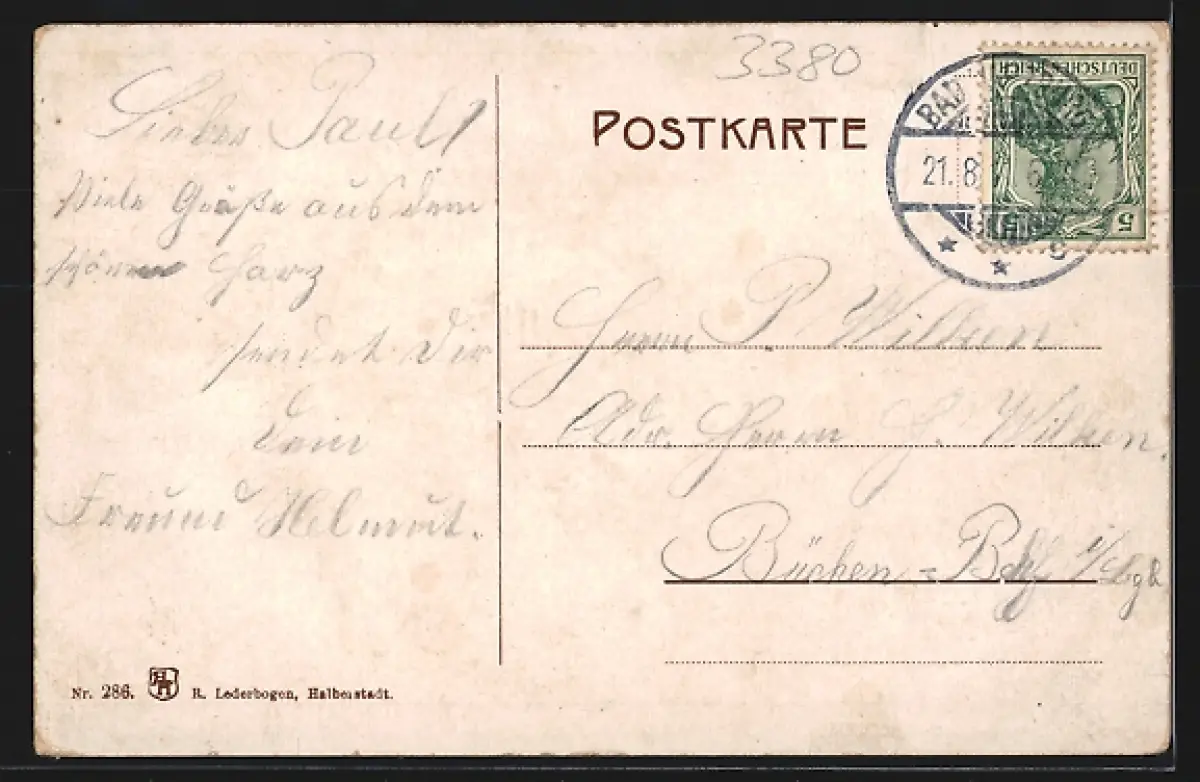 3380
POSTKARTE
DEUTSCHES REICH
5
BAD
21. 8.
Lieber Paul!
Viele Grüße aus dem
schönen Harz
sendet Dir
Dein
Freund Helmut.
Herrn P. Wilken
Adr. Herrn H. Wilken.
Büchen = Bhf. i/Lbg.
Nr. 286. R. Lederbogen, Halberstadt.